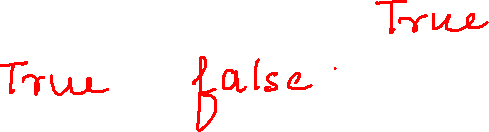 True
True false